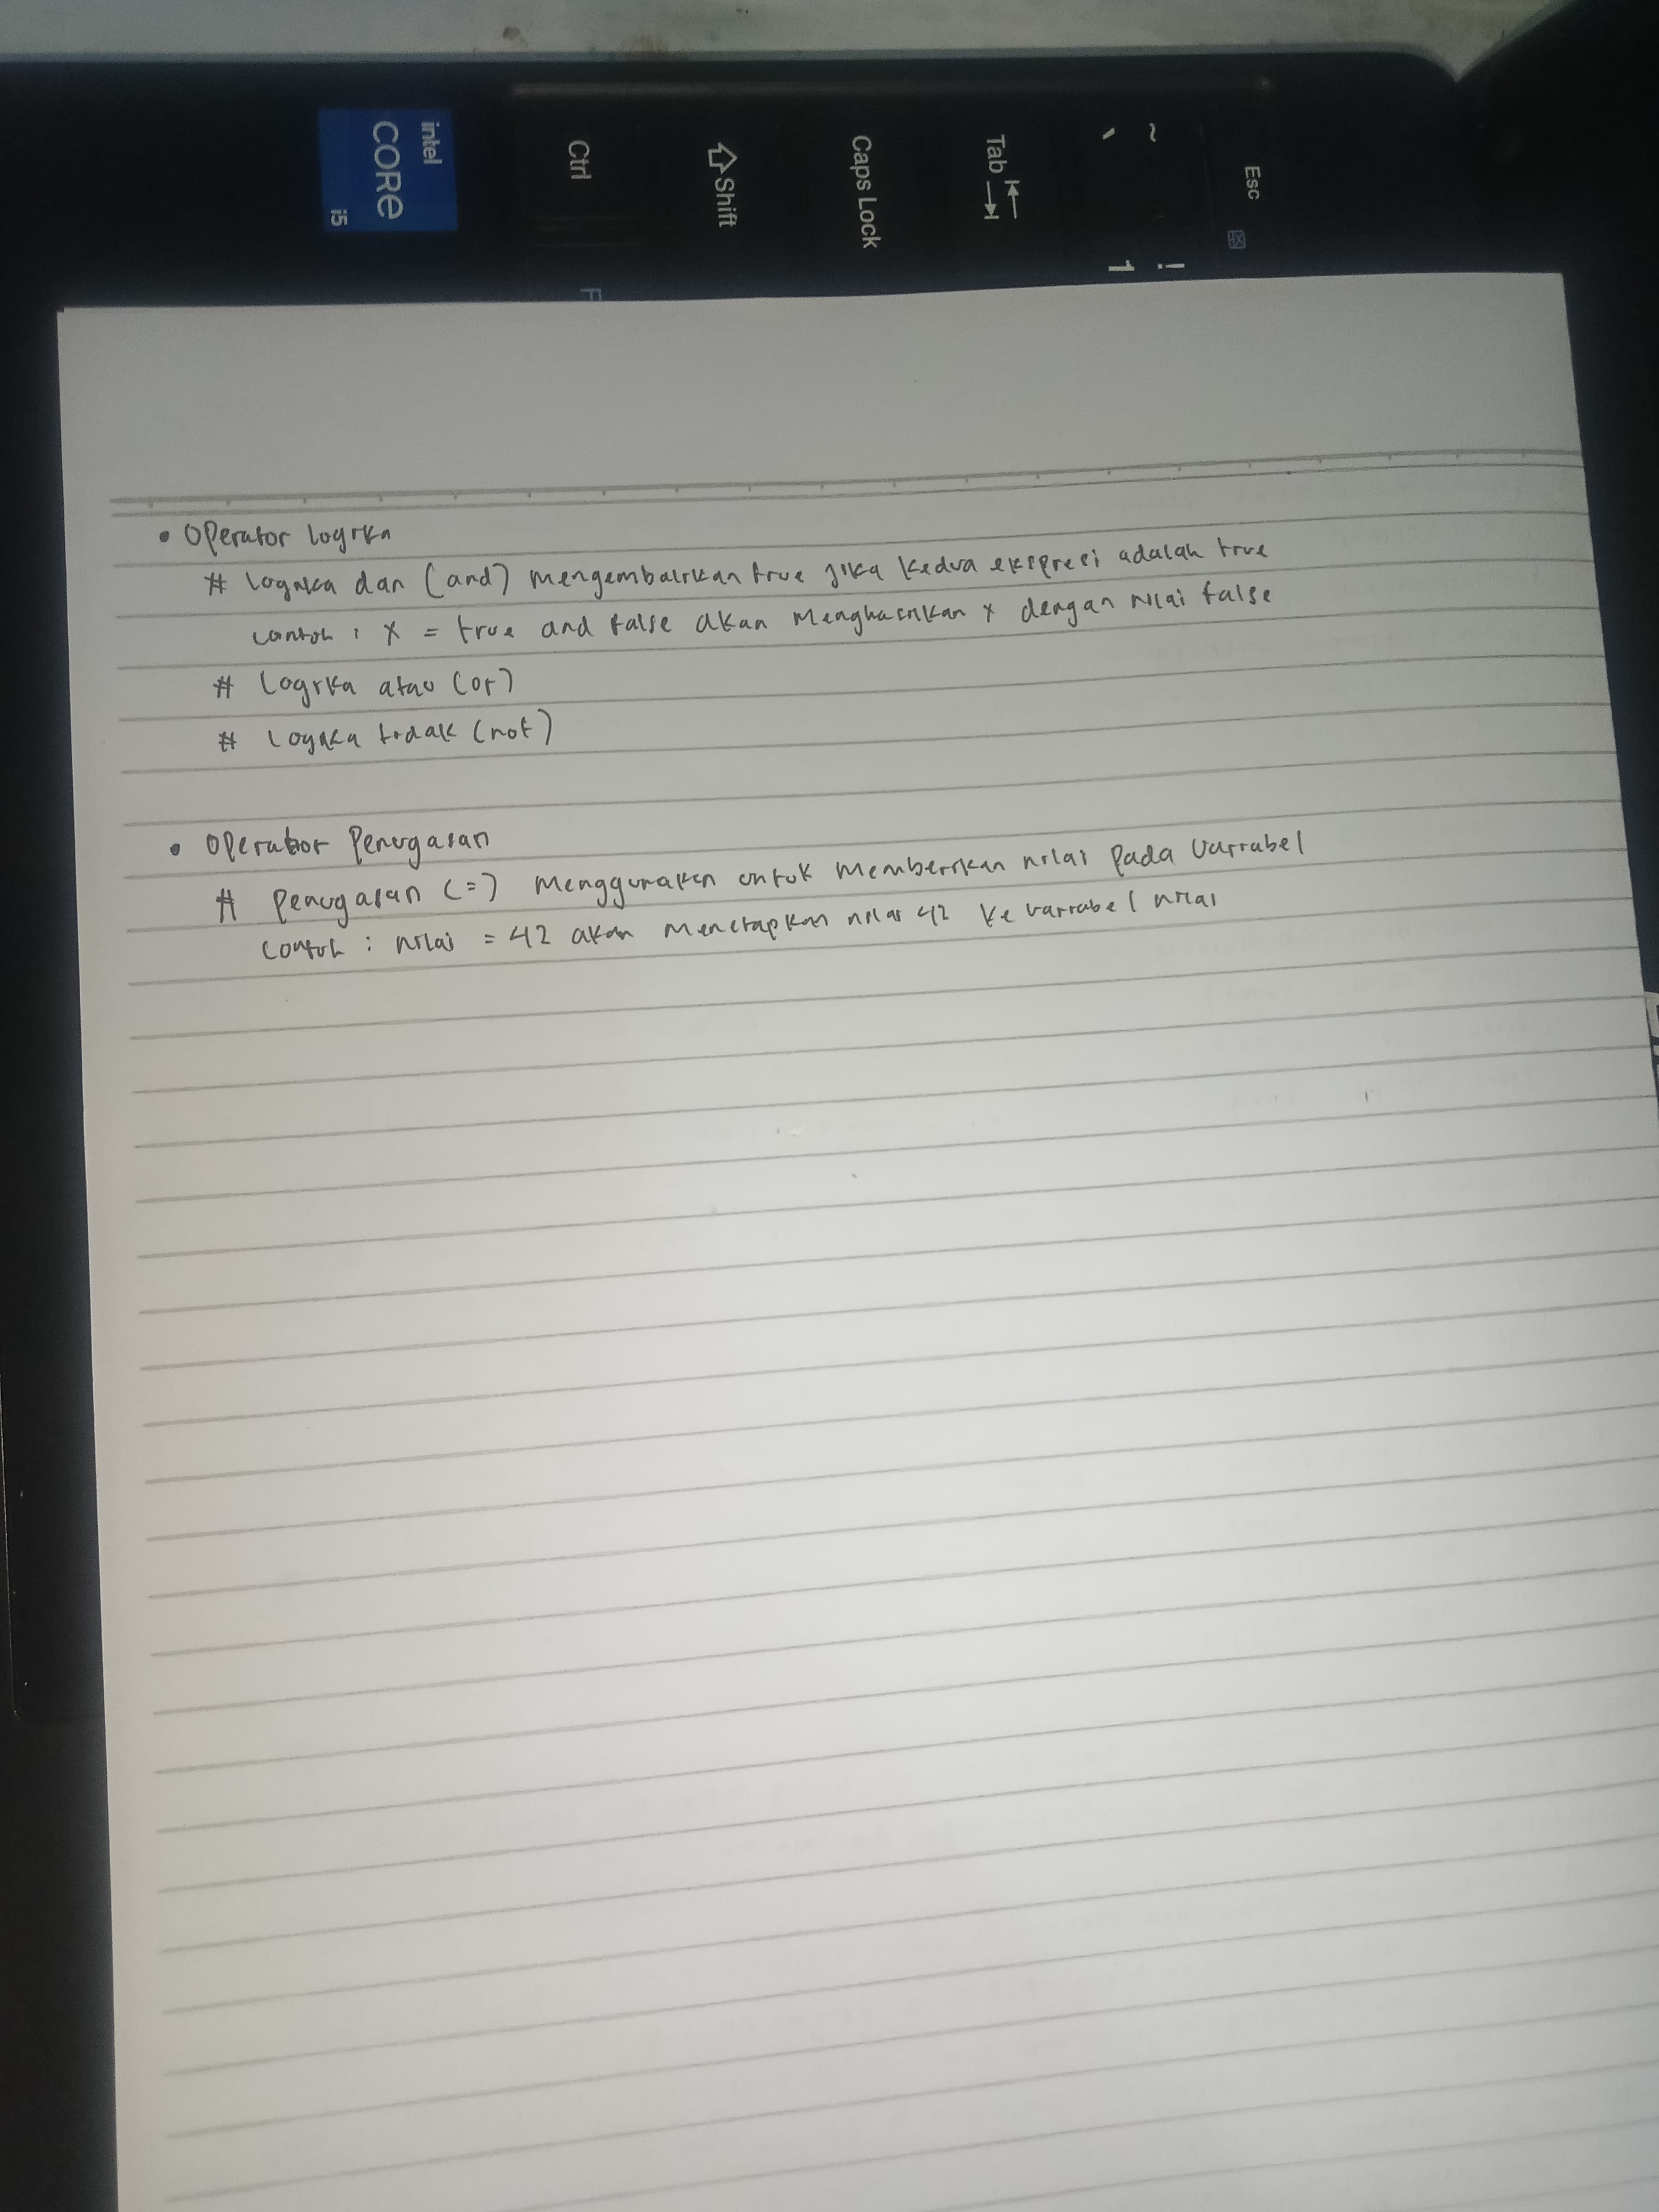 Esc
~
`
!
1
Tab
Caps Lock
Shift
Ctrl
F
intel
CORE
i5
• Operator logika
# Logika dan (and) mengembalikan true jika kedua ekspresi adalah true
contoh : x = true and false akan menghasilkan x dengan nilai false
# Logika atau (or)
# Logika tidak (not)
• Operator Penugasan
# Penugasan (=) menggunakan untuk memberikan nilai pada variabel
contoh : nilai = 42 akan menetapkan nilai 42 ke variabel nilai